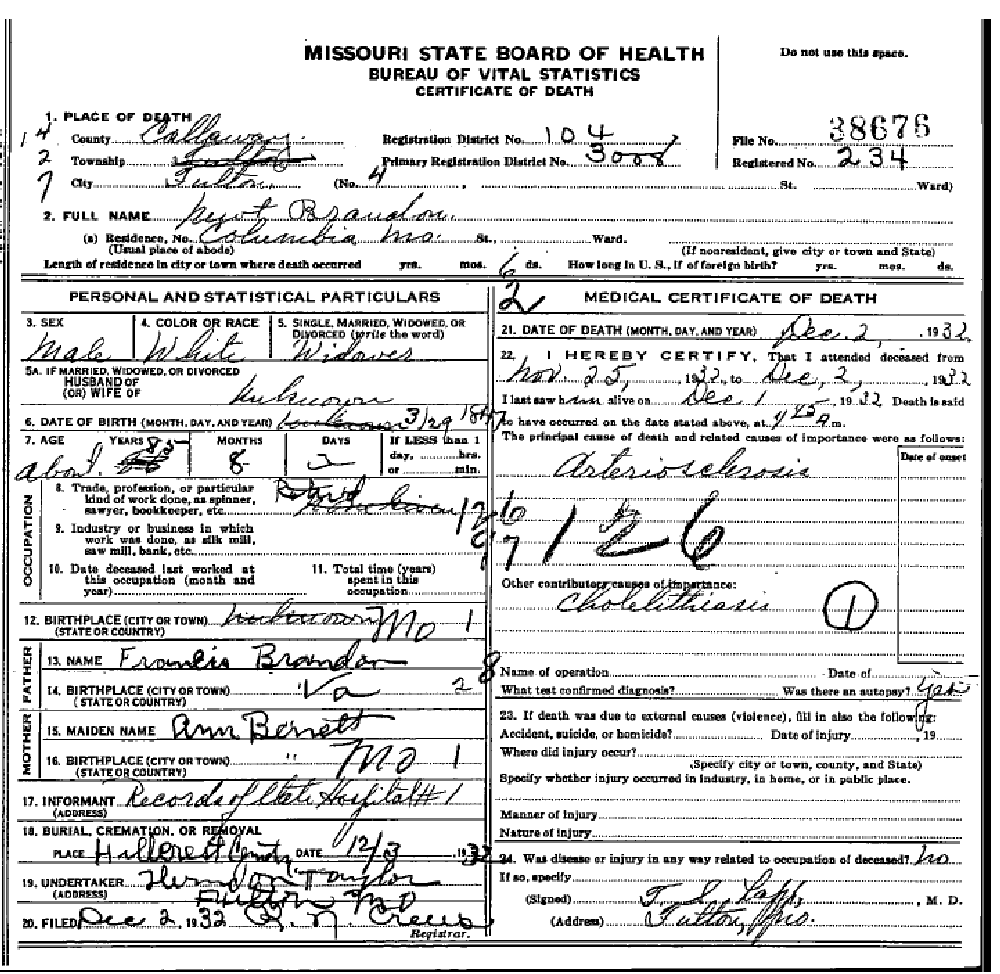 MISSOURI STATE BOARD OF HEALTH
BUREAU OF VITAL STATISTICS
CERTIFICATE OF DEATH
Do not use this space.
1. PLACE OF DEATH
County Callaway Registration District No. 104 File No. 38676
Township Fulton Primary Registration District No. 3008 Registered No. 234
City Fulton (No. 4 , St. Ward)
2. FULL NAME Newt Brandon.
(a) Residence, No. Columbia Mo. St., Ward.
(Usual place of abode) (If nonresident, give city or town and State)
Length of residence in city or town where death occurred yrs. mos. 6 ds. How long in U. S., if of foreign birth? yrs. mos. ds.
PERSONAL AND STATISTICAL PARTICULARS
3. SEX 4. COLOR OR RACE 5. SINGLE, MARRIED, WIDOWED, OR DIVORCED (write the word)
Male White Widower
5A. IF MARRIED, WIDOWED, OR DIVORCED
HUSBAND OF
(OR) WIFE OF Unknown
6. DATE OF BIRTH (MONTH, DAY, AND YEAR) unknown 3/29 1847
7. AGE YEARS MONTHS DAYS If LESS than 1
About 85 8 2 day, hrs.
or min.
OCCUPATION
8. Trade, profession, or particular
kind of work done, as spinner,
sawyer, bookkeeper, etc. Retired
9. Industry or business in which
work was done, as silk mill,
saw mill, bank, etc.
10. Date deceased last worked at
this occupation (month and
year)
11. Total time (years)
spent in this
occupation
12. BIRTHPLACE (CITY OR TOWN) unknown Mo 1
(STATE OR COUNTRY)
FATHER
13. NAME Francis Brandon
14. BIRTHPLACE (CITY OR TOWN) " Va 2 8
(STATE OR COUNTRY)
MOTHER
15. MAIDEN NAME Ann Bennett
16. BIRTHPLACE (CITY OR TOWN) " Mo 1
(STATE OR COUNTRY)
17. INFORMANT Records of State Hospital #1
(ADDRESS)
18. BURIAL, CREMATION, OR REMOVAL
PLACE Hillcrest DATE 12/3 1932
19. UNDERTAKER Herndon Taylor
(ADDRESS) Fulton Mo
20. FILED Dec 2, 1932 R. N. Crews
Registrar.
2 MEDICAL CERTIFICATE OF DEATH
21. DATE OF DEATH (MONTH, DAY, AND YEAR) Dec. 2, , 1932
22. I HEREBY CERTIFY, That I attended deceased from
Nov. 25, , 1932, to Dec, 2, , 1932
I last saw him alive on Dec. 1 , 1932 Death is said
to have occurred on the date stated above, at 4 25 A m.
The principal cause of death and related causes of importance were as follows:
Date of onset
Arteriosclerosis
126
Other contributory causes of importance:
Cholelithiasis 1
Name of operation Date of
What test confirmed diagnosis? Was there an autopsy? yes
23. If death was due to external causes (violence), fill in also the following:
Accident, suicide, or homicide? Date of injury , 19
Where did injury occur?
(Specify city or town, county, and State)
Specify whether injury occurred in industry, in home, or in public place.
Manner of injury
Nature of injury
24. Was disease or injury in any way related to occupation of deceased? No
If so, specify
(Signed) T. S. Lapp, , M. D.
(Address) Fulton, Mo.